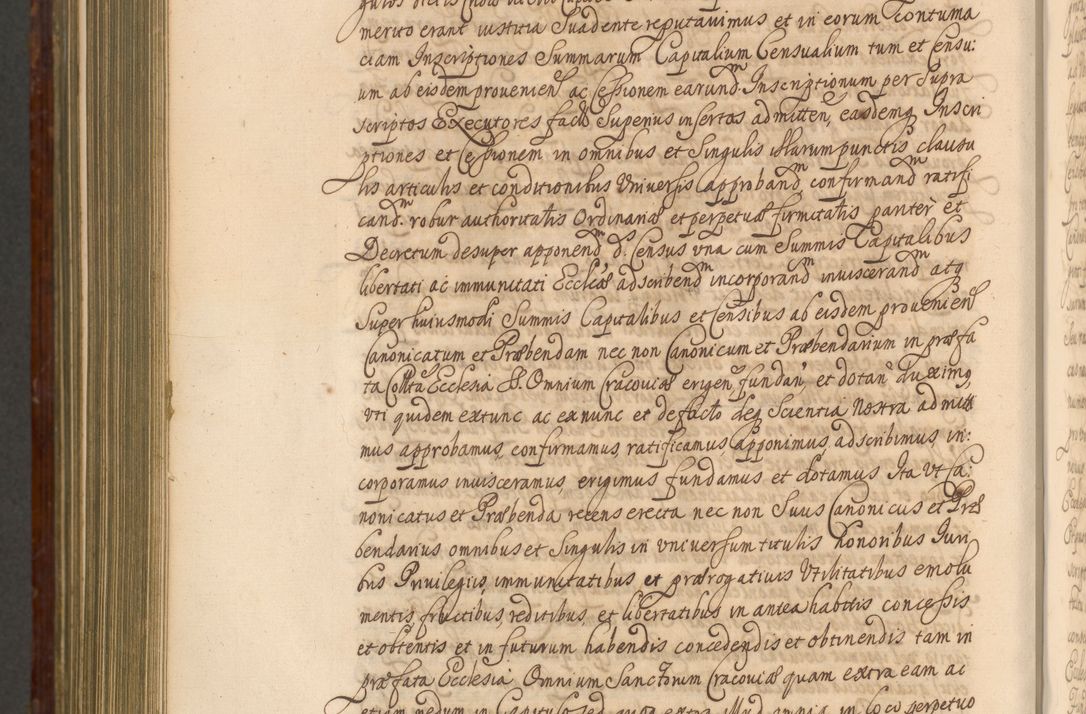 merito erant iustitia Suadente reputauimus et in eorum Contuma
ciam Inscriptiones Summarum Capitalium Censualium tum et Censu:
um ab eisdem prouenien̄ ac Cessionem earund.m Inscriptionum per Supra
scriptos Executores fact̄ Superius insertas admitten̄, easdemq Inscri
ptiones et Cessionem in omnibus et Singulis illarum punctis clausu
lis articulis et conditionibus Vniuersis approband.m confirmand.m ratifi
cand.m robur authoritatis Ordinariæ et perpetuæ firmitatis pariter et
Decretum desuper apponend.m d.s Census vna cum Summis Capitalibus
libertati ac immunitati Eccliæ adscribend.m incorporand.m inuiscerand.m atq
Super huiusmodi Summis Capitalibus et Censibus ab eisdem prouenien̄
Canonicatum et Præbendam nec non Canonicum et Præbendarium in præfa
ta Collta Ecclesia S. Omnium Cracouiæ erigen̄, fundan̄, et dotan̄ duximq,
vti quidem extunc ac ex nunc et de facto deq Scientia Nostra admitti
mus approbamus, confirmamus, ratificamus, apponimus, adscribimus, in:
corporamus inuisceramus, erigimus fundamus et dotamus Ita Vt Ca:
nonicatus et Præbenda recens erecta nec non Suus Canonicus et Præ
bendarius omnibus et Singulis in vniuersum titulis honoribus Iuri
bus Priuilegijs, immunitatibus et prærogatiuis Vtilitatibus emolu
mentis, fructibus, reditibus, et libertatibus in antea habitis concessis
et obtentis et in futurum habendis concedendis et obtinendis tam in
præfata Ecclesia Omnium Sanctorum Cracouiæ quam extra eam ac